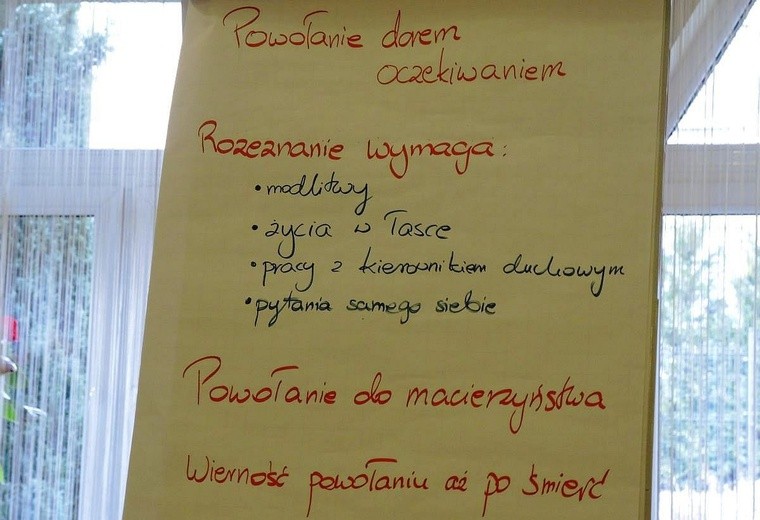 Powołanie darem
oczekiwaniem
Rozeznanie wymaga:
• modlitwy
• życia w Łasce
• pracy z kierownikiem duchowym
• pytania samego siebie
Powołanie do macierzyństwa
Wierność powołaniu aż po śmierć